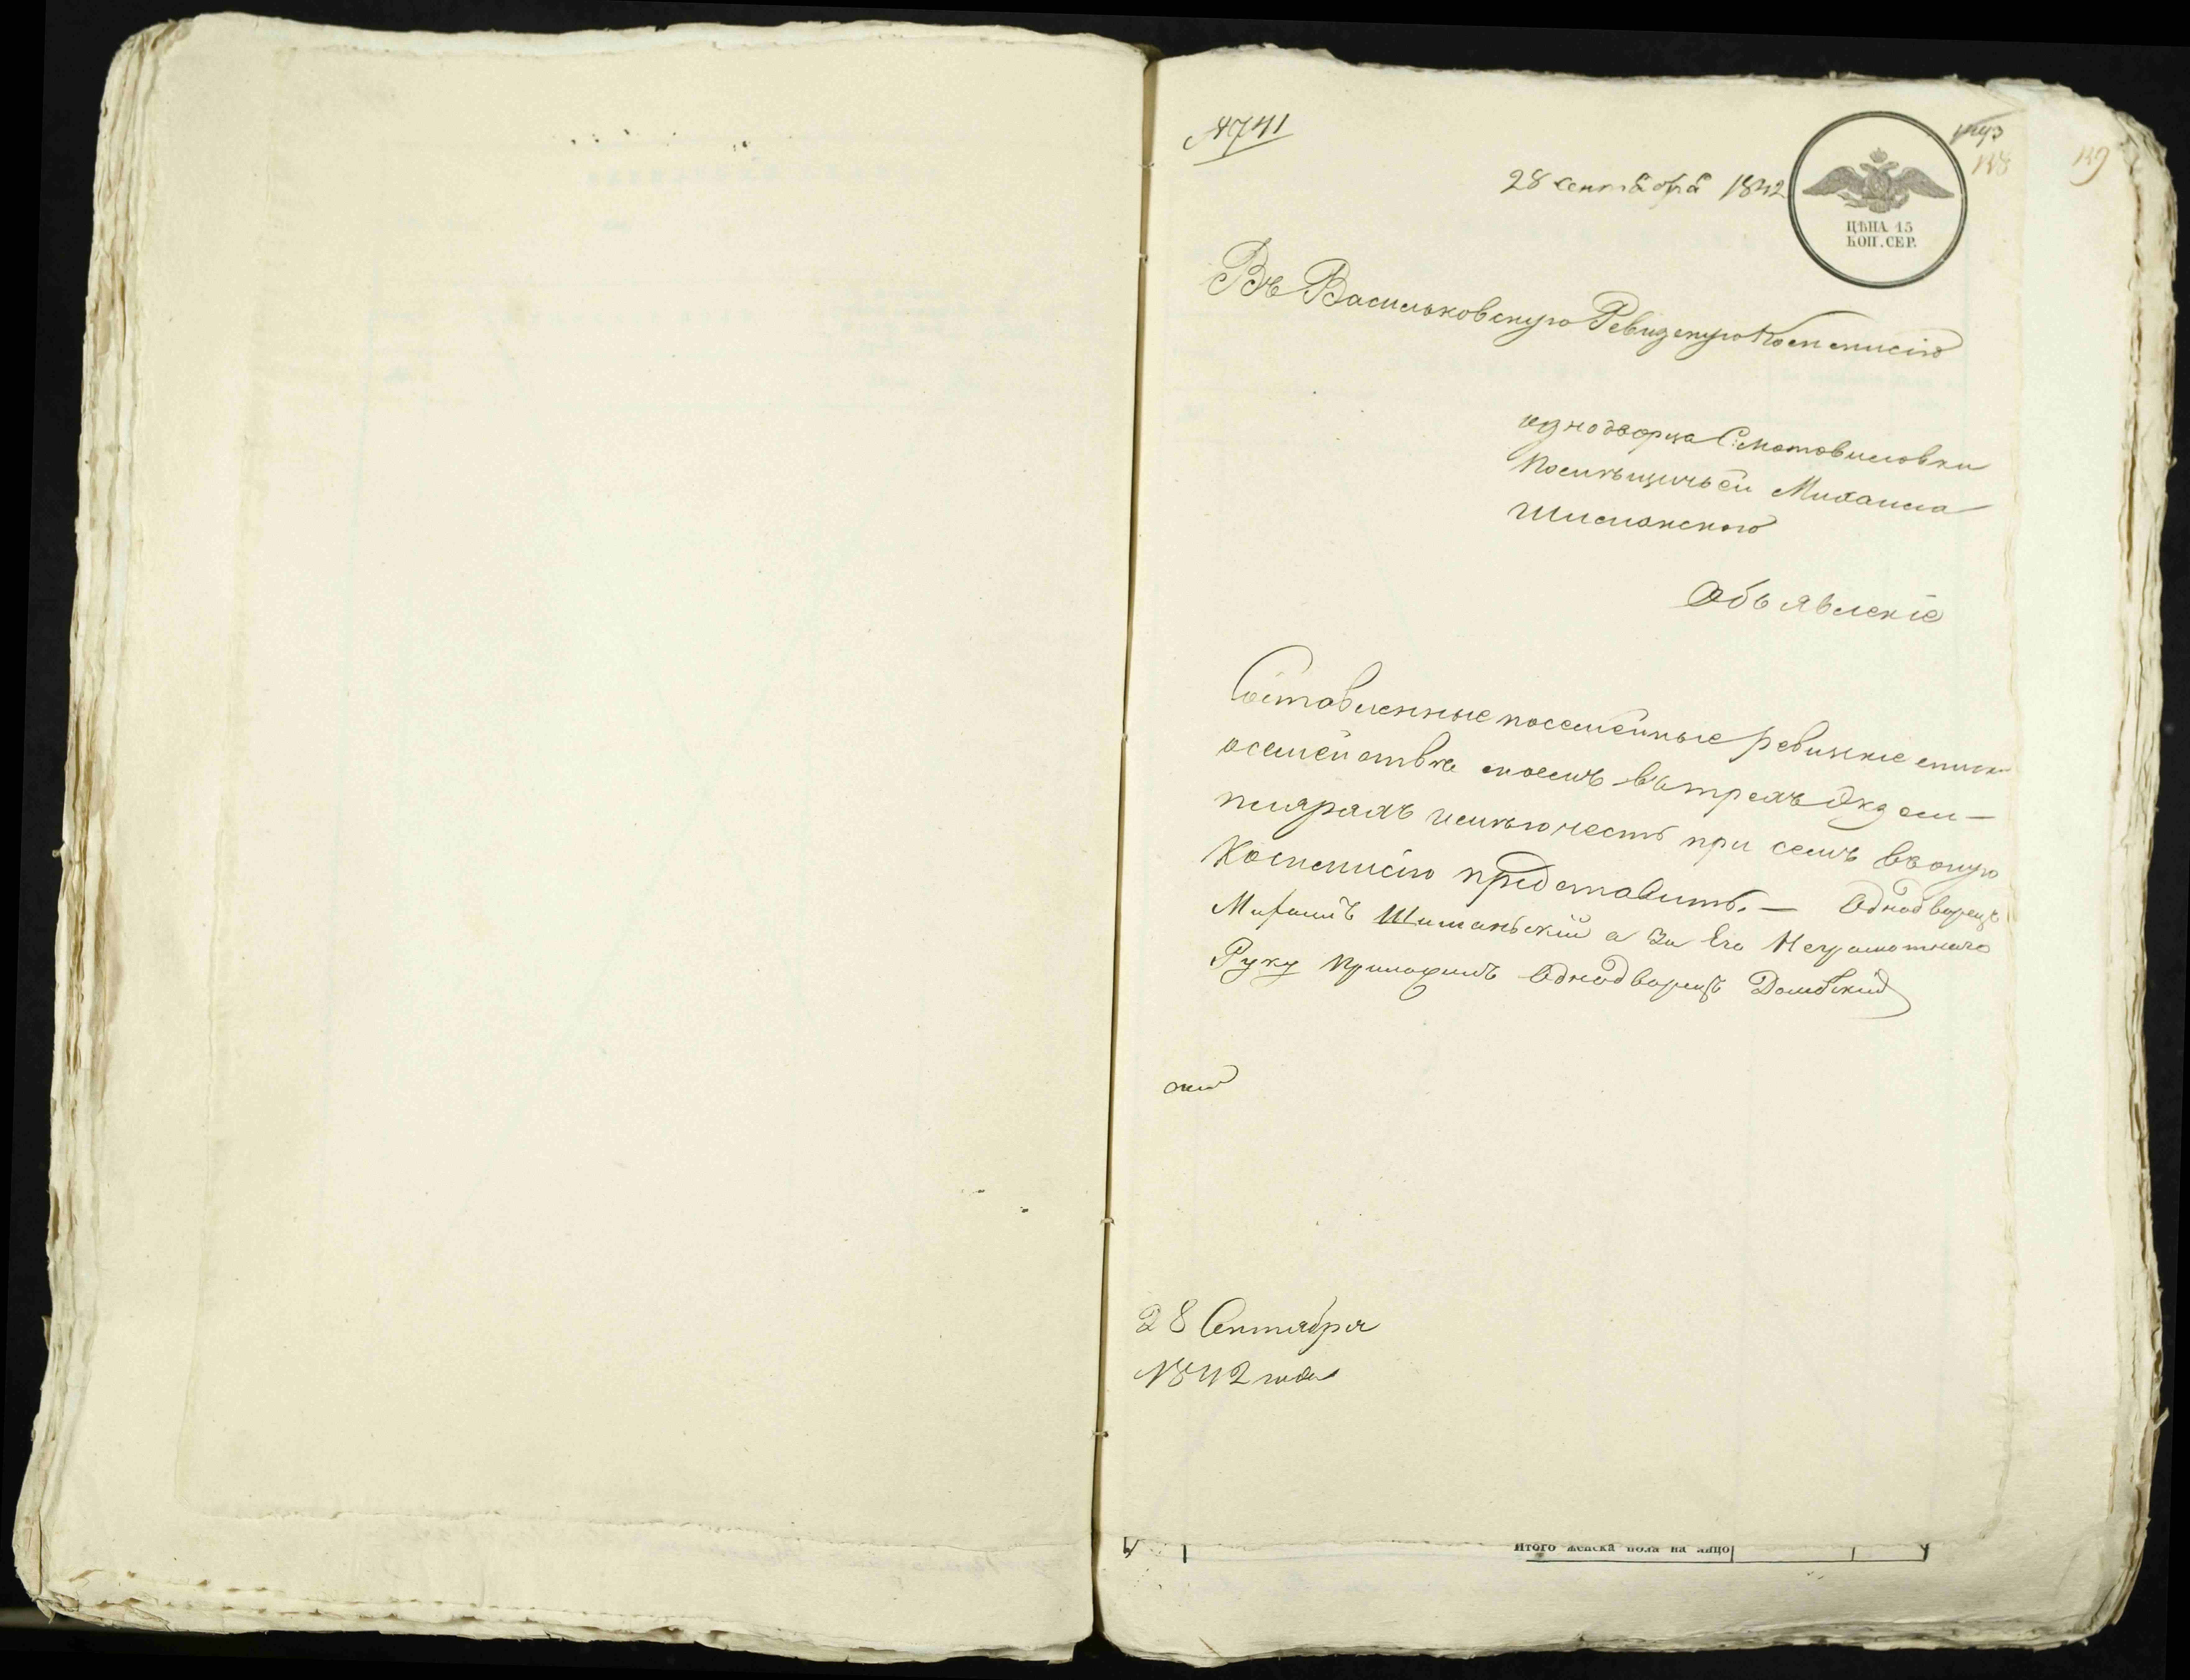 №741
28 сентября 1842
ЦѢНА 15
КОП. СЕР.
138
139
Въ Васильковскую Ревизскую Коммисію
однодворца С: Мотовиловки
Помѣщичьей Михаила
Шиманского
Объявленіе
Составленные посемейные ревизкие списки
о семействѣ моемъ въ трехъ Экзем-
плярахъ имѣю честь при семъ въ оную
Коммисію представить. — Однодворецъ
Михаилъ Шиманьский а За Его Неграмотнаго
Руку Приложилъ Однодворецъ Домбский
28 Сентября
1842 года
Итого женска пола на лицо